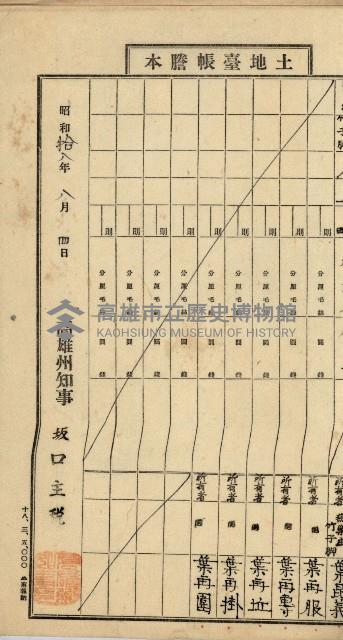 土地臺帳謄本
所有者 葉再服
所有者 葉再專
所有者 葉再
所有者 葉再掛
所有者 葉再圍
則 則 則 則 則 則
分厘毛絲 分厘毛絲 分厘毛絲 分厘毛絲 分厘毛絲 分厘毛絲
圓 錢 圓 錢 圓 錢 圓 錢 圓 錢 圓 錢
昭和拾八年 八月 四日
高雄州知事 坂口主税
十八、三、五、〇〇〇
高雄市立歷史博物館
KAOHSIUNG MUSEUM OF HISTORY